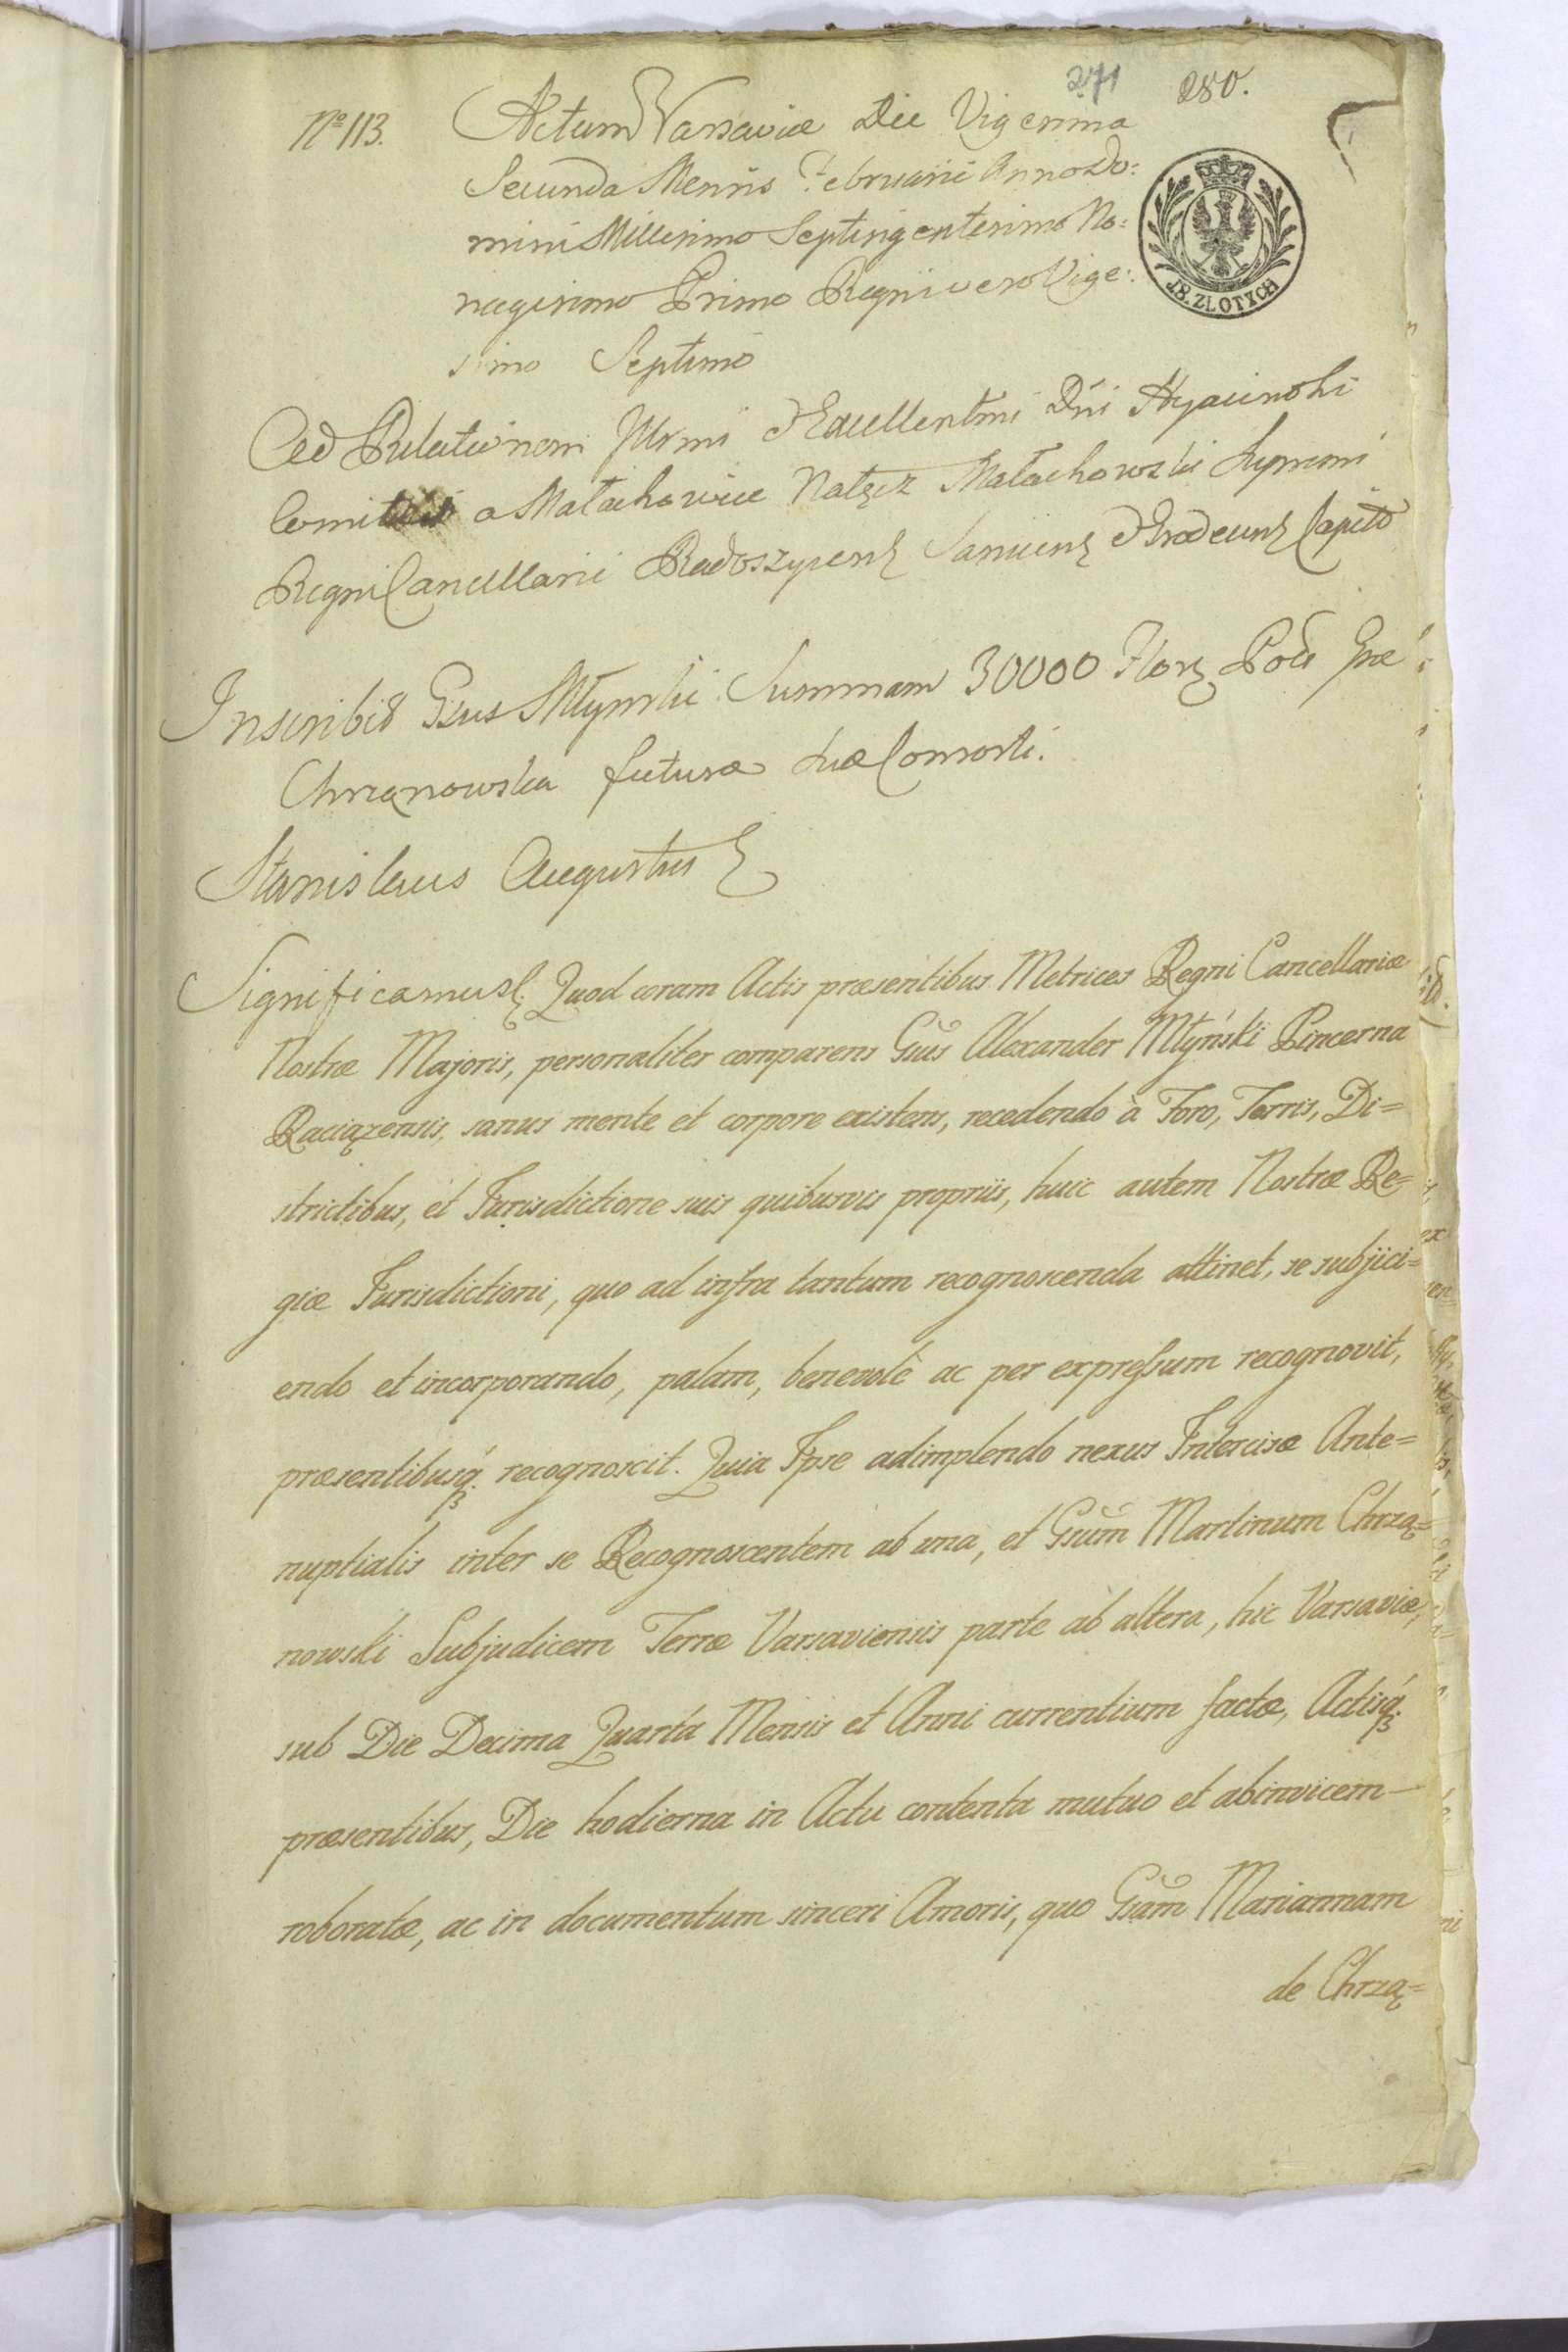 271 280.
No 113. Actum Varsaviæ Die Vigesima
Secunda Mensis Februarii Anno Do:
mini Millesimo Septingentesimo No:
nagesimo Primo Regni vero Vige:
simo Septimo
18. ZŁOTYCH
Ad Relationem Illrmi Excellentmi Dni Hyacinthi
Comitis a Małachowice Nałęcz Małachowski Supremi
Regni Cancellarii Radoszycens Sanicens Grodecens Capit
Inscribit Gsus Młynski Summam 30000 Flor Pol Gsæ
Chrzanowska futuræ suæ Consorti.
Stanislaus Augustus
Significamus. Quod coram Actis præsentibus Metrices Regni Cancellariæ
Nostræ Majoris, personaliter comparens Gsus Alexander Młyński Pincerna
Raciązensis, sanus mente et corpore existens, recedendo à Foro, Terris, Di=
strictibus, et Jurisdictione suis quibusvis propriis, huic autem Nostræ Re=
giæ Jurisdictioni, quo ad infra tantum recognoscenda attinet, se subjici=
endo et incorporando, palam, benevolè ac per expressum recognovit,
præsentibusq. recognoscit. Quia Ipse adimplendo nexus Intercisæ Ante=
nuptialis inter se Recognoscentem ab una, et Gsum Martinum Chrzą=
nowski Subjudicem Terræ Varsaviensis parte ab altera, hic Varsaviæ,
sub Die Decima Quarta Mensis et Anni currentium factæ, Actisq.
præsentibus, Die hodierna in Actu contenta mutuo et abinvicem
roboratæ, ac in documentum sinceri Amoris, quo Gsam Mariannam
de Chrzą=